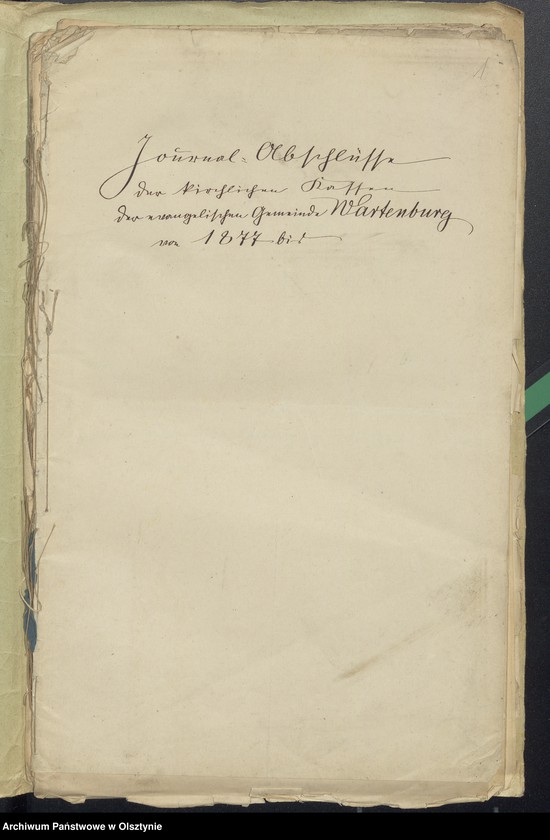 1
Journal-Abschlüsse
der kirchlichen Kassen
der evangelischen Gemeinde Wartenburg
von 1877 bis
Archiwum Państwowe w Olsztynie